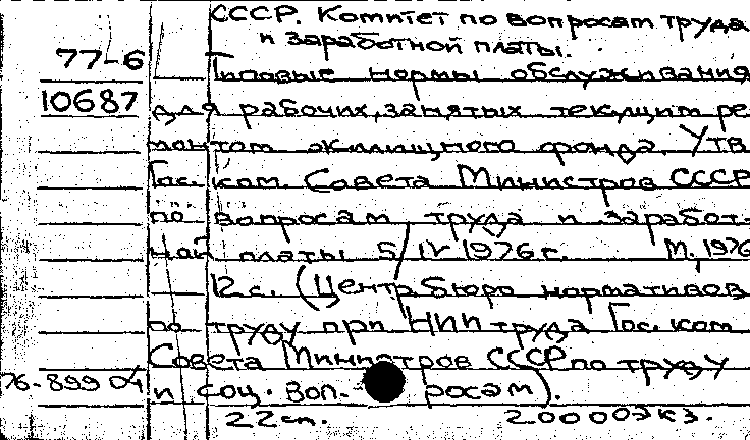 СССР. Комитет по вопросам труда
и заработной платы.
77-6 Типовые нормы обслуживания
10687 для рабочих, занятых текущим ре
монтом жилищного фонда. Утв
Гос. ком. Совета Министров СССР
по вопросам труда и заработ-
ной платы 5/IV 1976 г. М., 1976
12 с. (Центр. бюро нормативов
по труду при НИИ труда Гос. ком
Совета Министров СССР по труду
76-899 04 и соц. воп- росам).
22 сп. 20000 экз.